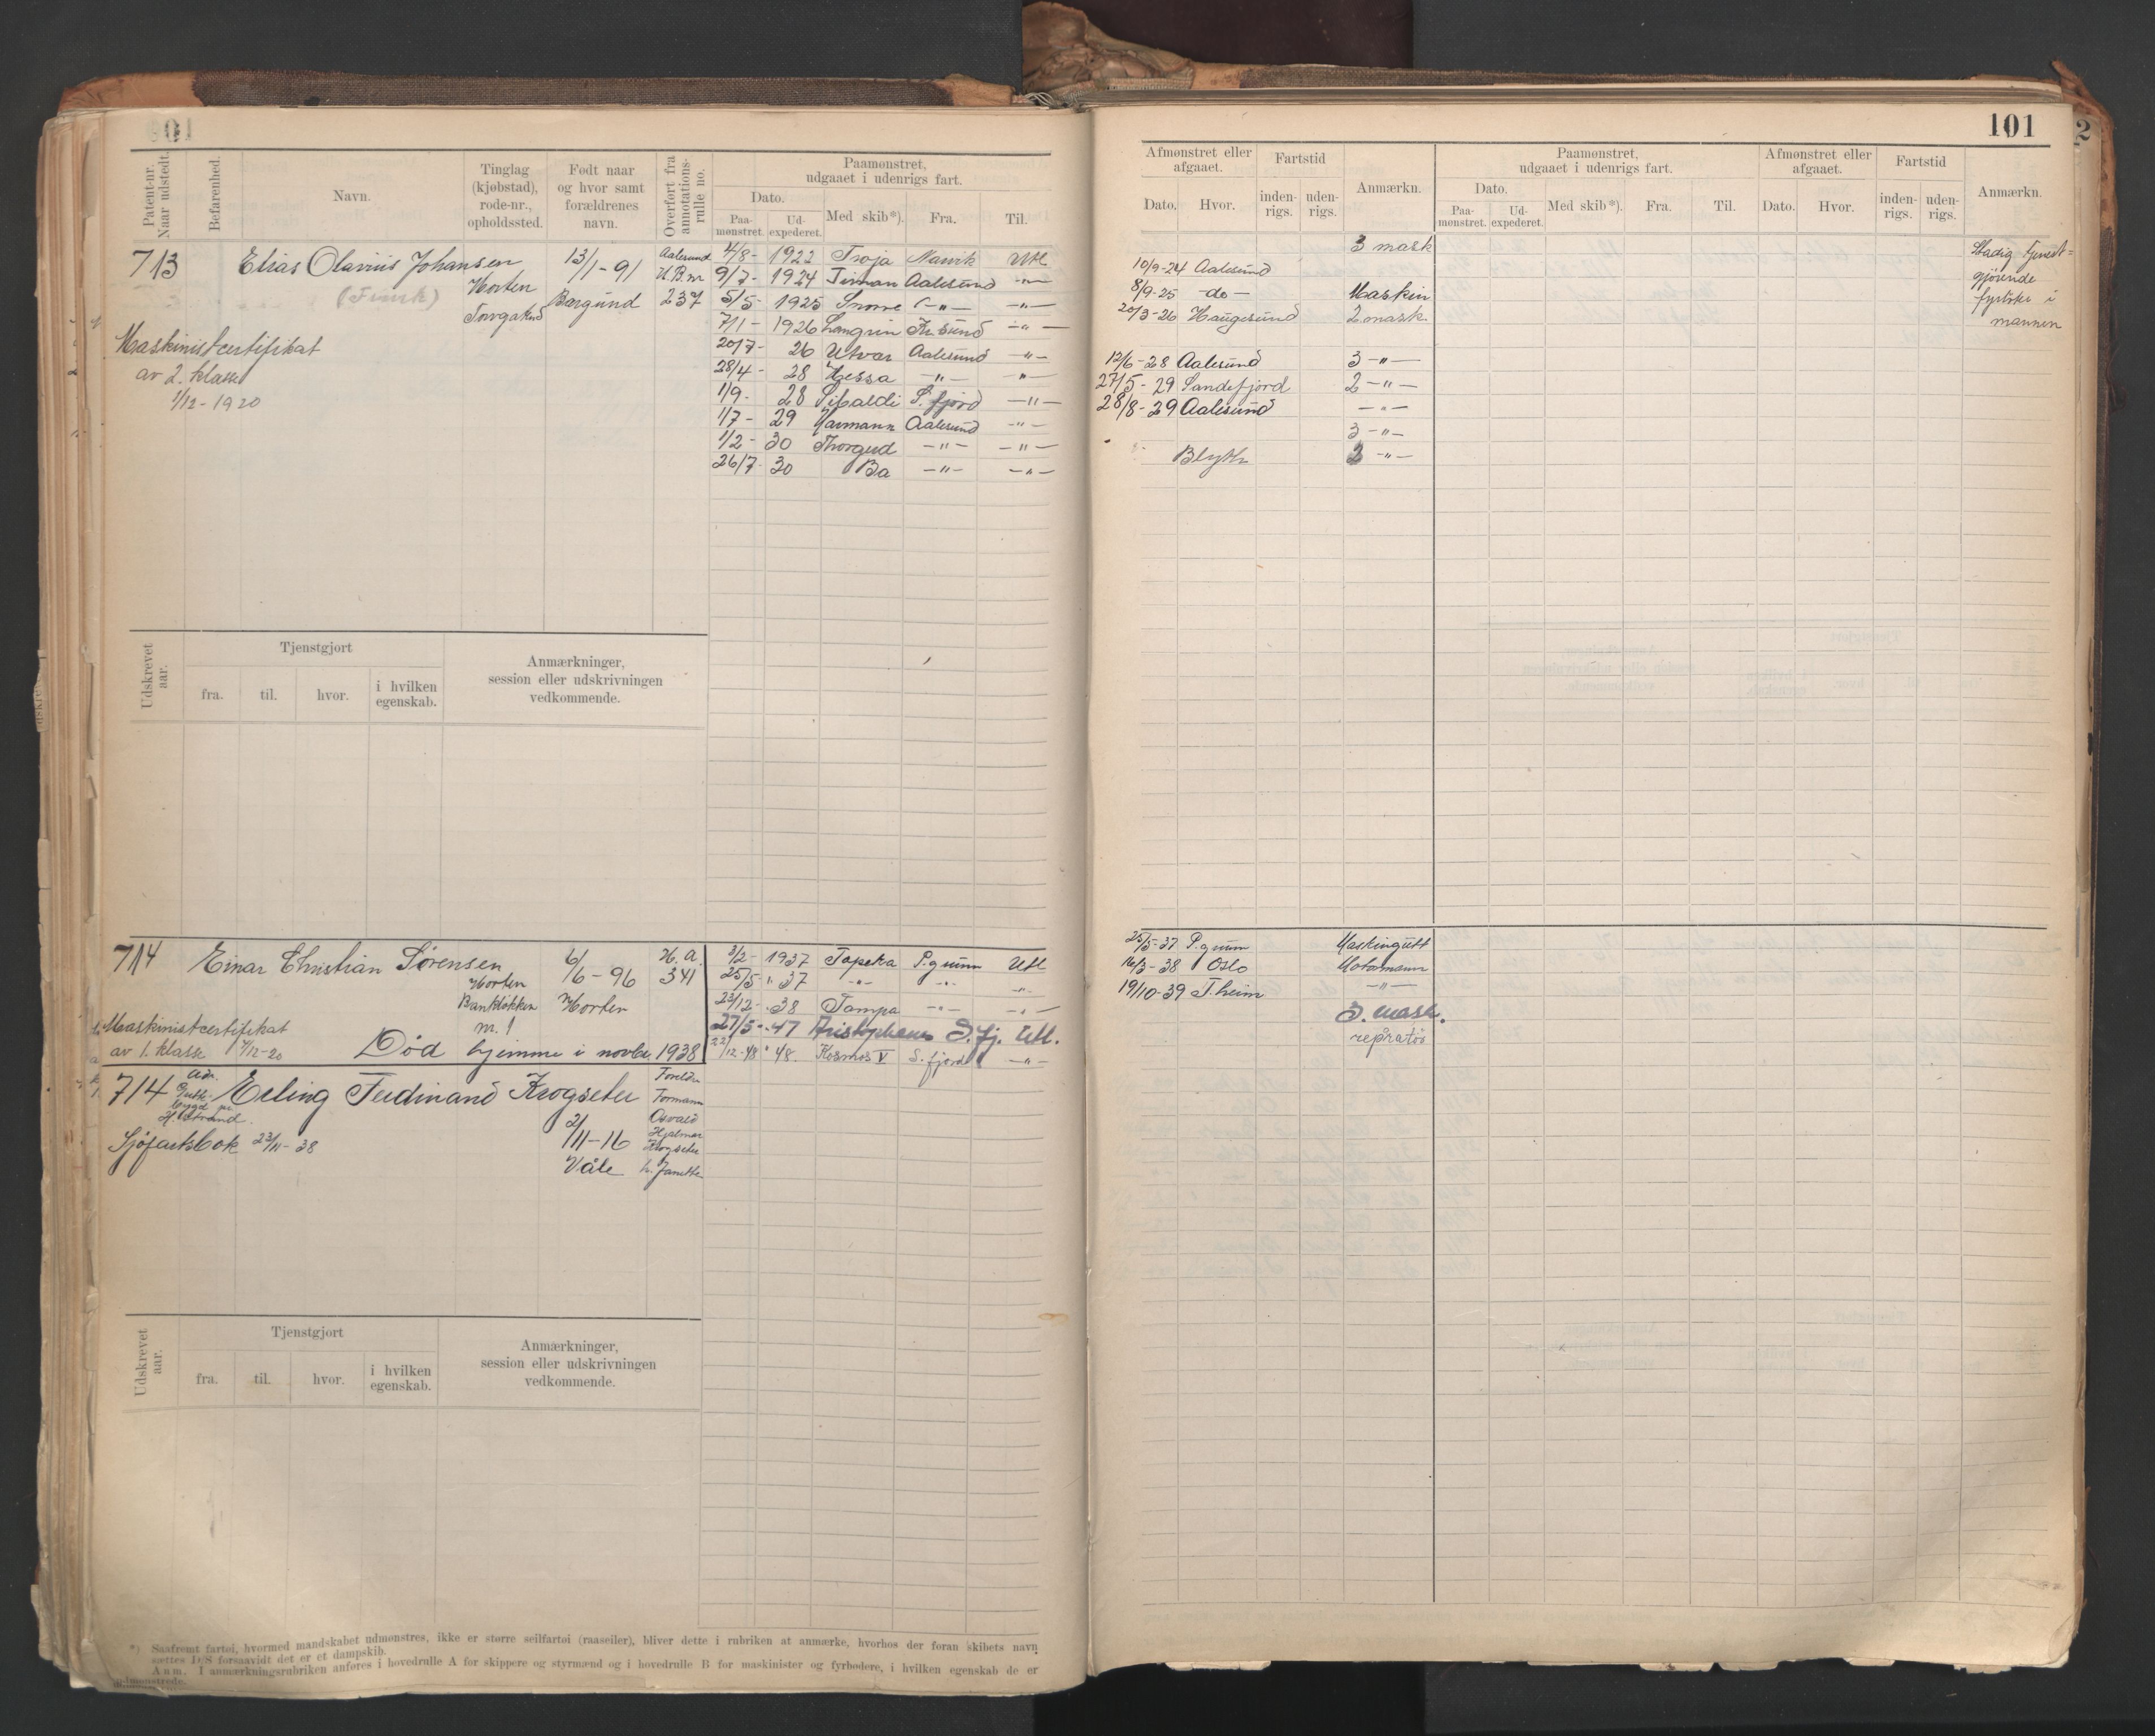 101
Patent-nr. Naar udstedt.
Befarenhed.
Navn.
Tinglag (kjøbstad), rode-nr., opholdssted.
Født naar og hvor samt forældrenes navn.
Overført fra annotations-rulle no.
Paamønstret, udgaaet i udenrigs fart.
Dato.
Paa-mønstret.
Ud-expederet.
Med skib*).
Fra.
Til.
713
Elias Olavius Johansen
Horten
13/1-91
Borgund
Aalesund
237
4/8- 1922 Troja Narvik Utl
9/7- 1924 Timan Aalesund -"-
5/5- 1925 Snorre -"- -"-
7/1- 1926 Kr.sund -"-
20/7- 26 Utvær Aalesund -"-
28/4- 28 Hessa -"- -"-
1/9- 28 Sibaldi S.fjord -"-
1/7- 29 Aalesund -"-
1/2- 30 -"- -"-
26/7- 30 Ba -"- -"-
Maskinistcertifikat
av 2. klasse
1/12-1920
Udskrevet aar.
Tjenstgjort
fra.
til.
hvor.
i hvilken egenskab.
Anmærkninger, session eller udskrivningen vedkommende.
714
Einar Christian Sørensen
Horten
Bankløkken
6/6-96
Horten
H.a.
341
3/2- 1937 Topeka P.grunn Utl
25/5- " 37 -"- -"- -"-
23/12- 38 Tampa -"- -"-
27/5- 47 S.fj. Utl.
48. Kosmos V S.fjord -"-
Maskinistcertifikat
av 1. klasse
Død hjemme i novbr. 1938
714
Erling Ferdinand Krogseter
Adr.
H.strand.
2/11-16
Våle
Foreldre
Formann
Osvald
Hjalmar
Krogseter
Sjøfartsbok 23/11-38
Udskrevet aar.
Tjenstgjort
fra.
til.
hvor.
i hvilken egenskab.
Anmærkninger, session eller udskrivningen vedkommende.
*) Saafremt fartøi, hvormed mandskabet udmønstres, ikke er større seilfartøi (raaseiler), bliver dette i rubriken at anmærke, hvorhos der foran skibets navn
sættes D/S forsaavidt det er et dampskib.
Anm. I anmærkningsrubriken anføres i hovedrulle A for skippere og styrmænd og i hovedrulle B for maskinister og fyrbødere, i hvilken egenskab de er
udmønstrede.
101
Afmønstret eller afgaaet.
Fartstid
Dato.
Hvor.
inden-rigs.
uden-rigs.
Anmærkn.
Paamønstret, udgaaet i udenrigs fart.
Dato.
Paa-mønstret.
Ud-expederet.
Med skib*).
Fra.
Til.
Afmønstret eller afgaaet.
Dato.
Hvor.
Fartstid
inden-rigs.
uden-rigs.
Anmærkn.
3 mask
10/9-24 Aalesund
8/9-25 -do- Maskin
20/3-26 Haugesund 2.mask.
12/6-28 Aalesund 3 -"-
27/5-29 Sandefjord 2 -"-
28/8-29 Aalesund -"-
3 -"-
Blyth 2 -"-
Stadig tjenst-
gjørende
i
marinen
25/5-37 P.grunn Maskingutt
16/3-38 Oslo Motormann
19/10-39 T.heim -"-
3. mask.
repratør